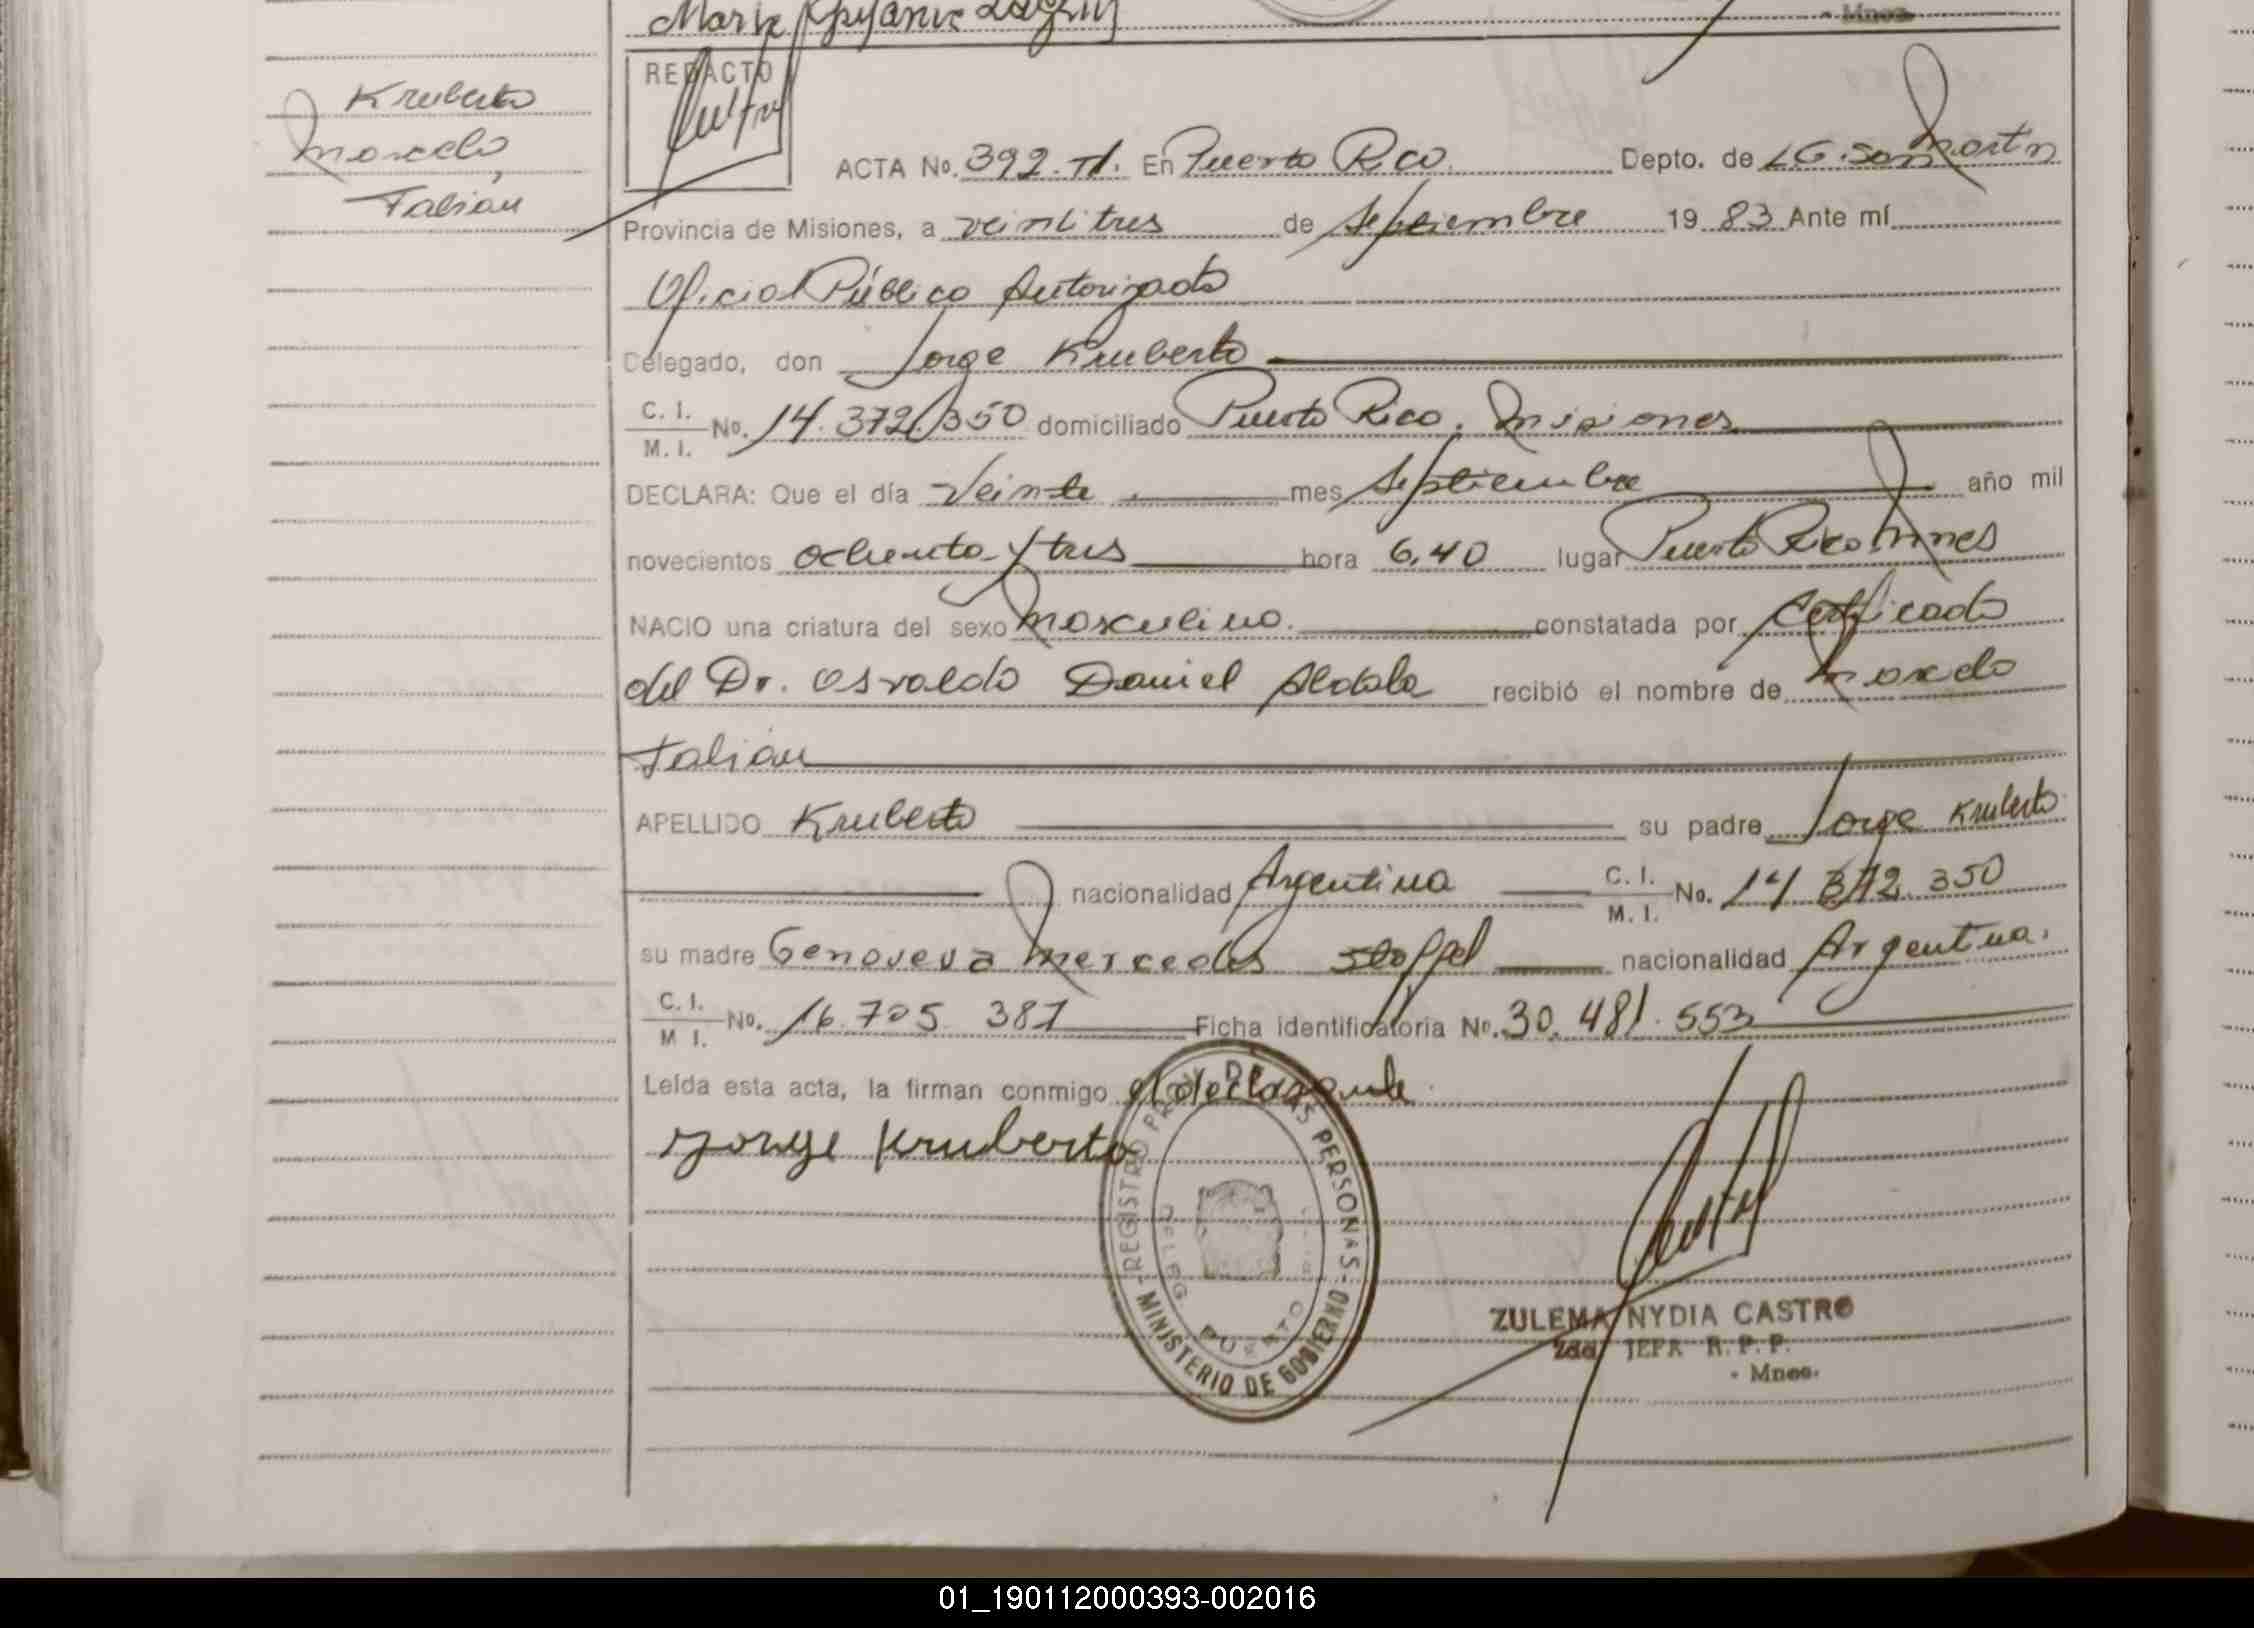 Kruberto
Marcelo
Fabián
REDACTO
ACTA No. 392. TI. En Puerto Rico. Depto. de LG. San Martín
Provincia de Misiones, a veintitres de Septiembre 19 83 Ante mí
Oficial Público Autorizado
Delegado, don Jorge Kruberto
C. I.
M. I. No. 14.372.350 domiciliado Puerto Rico. Misiones
DECLARA: Que el día Veinte mes Septiembre año mil
novecientos ochenta y tres hora 6,40 lugar Puerto Rico Mnes
NACIO una criatura del sexo Masculino. constatada por Certificado
del Dr. Osvaldo Daniel recibió el nombre de Marcelo
Fabián
APELLIDO Kruberto su padre Jorge Kruberto
nacionalidad Argentina C. I.
M. I. No. 14.372.350
su madre Genoveva Mercedes Stoffel nacionalidad Argentina.
C. I.
M I. No. 16.705 387 Ficha identificatoria No. 30.481.553
Leída esta acta, la firman conmigo el declarante.
Jorge Kruberto
-REGISTRO PROV. DE LAS PERSONAS-
MINISTERIO DE GOBIERNO
DELEG. PUERTO
ZULEMA NYDIA CASTRO
2da. JEFA R. P. P.
- Mnes-
01_190112000393-002016